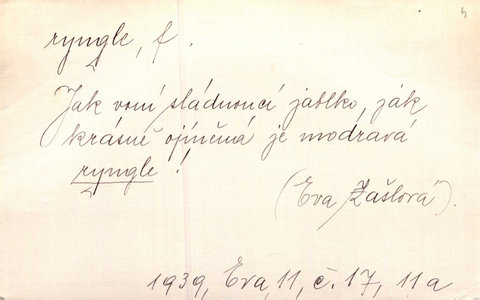 ryngle, f.
Jak voní sládnoucí jablko, jak
krásně ojíněná je modravá
ryngle!
(Eva Zášlová).
1939, Eva, 11, č. 17, 11a